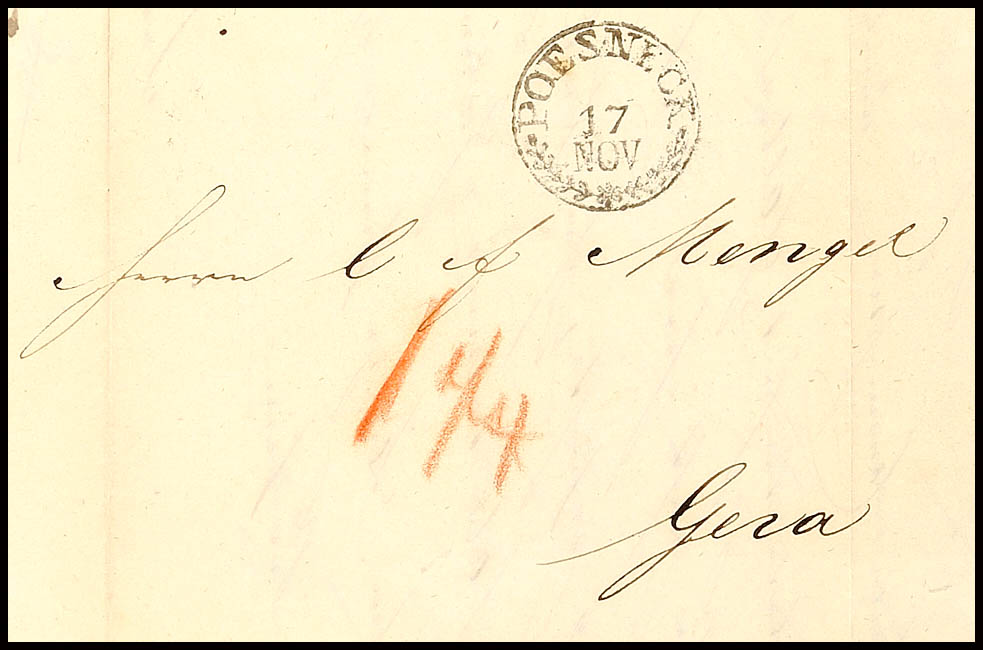 POESNECK
17
NOV
Herrn C F Mengel
1 1/4
Gera